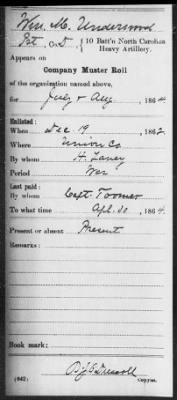 Wm. M. Underwood
Pvt., Co. D, 10 Batt'n North Carolina
Heavy Artillery.
Appears on
Company Muster Roll
of the organization named above,
for July & Aug, 1864
Enlisted:
When Dec 19, 1862
Where Union Co.
By whom H. Laney
Period War
Last paid:
By whom Capt. Toomer
To what time Apl. 30, 1864
Present or absent Present
Remarks:
Book mark:
(642)
Copyist.